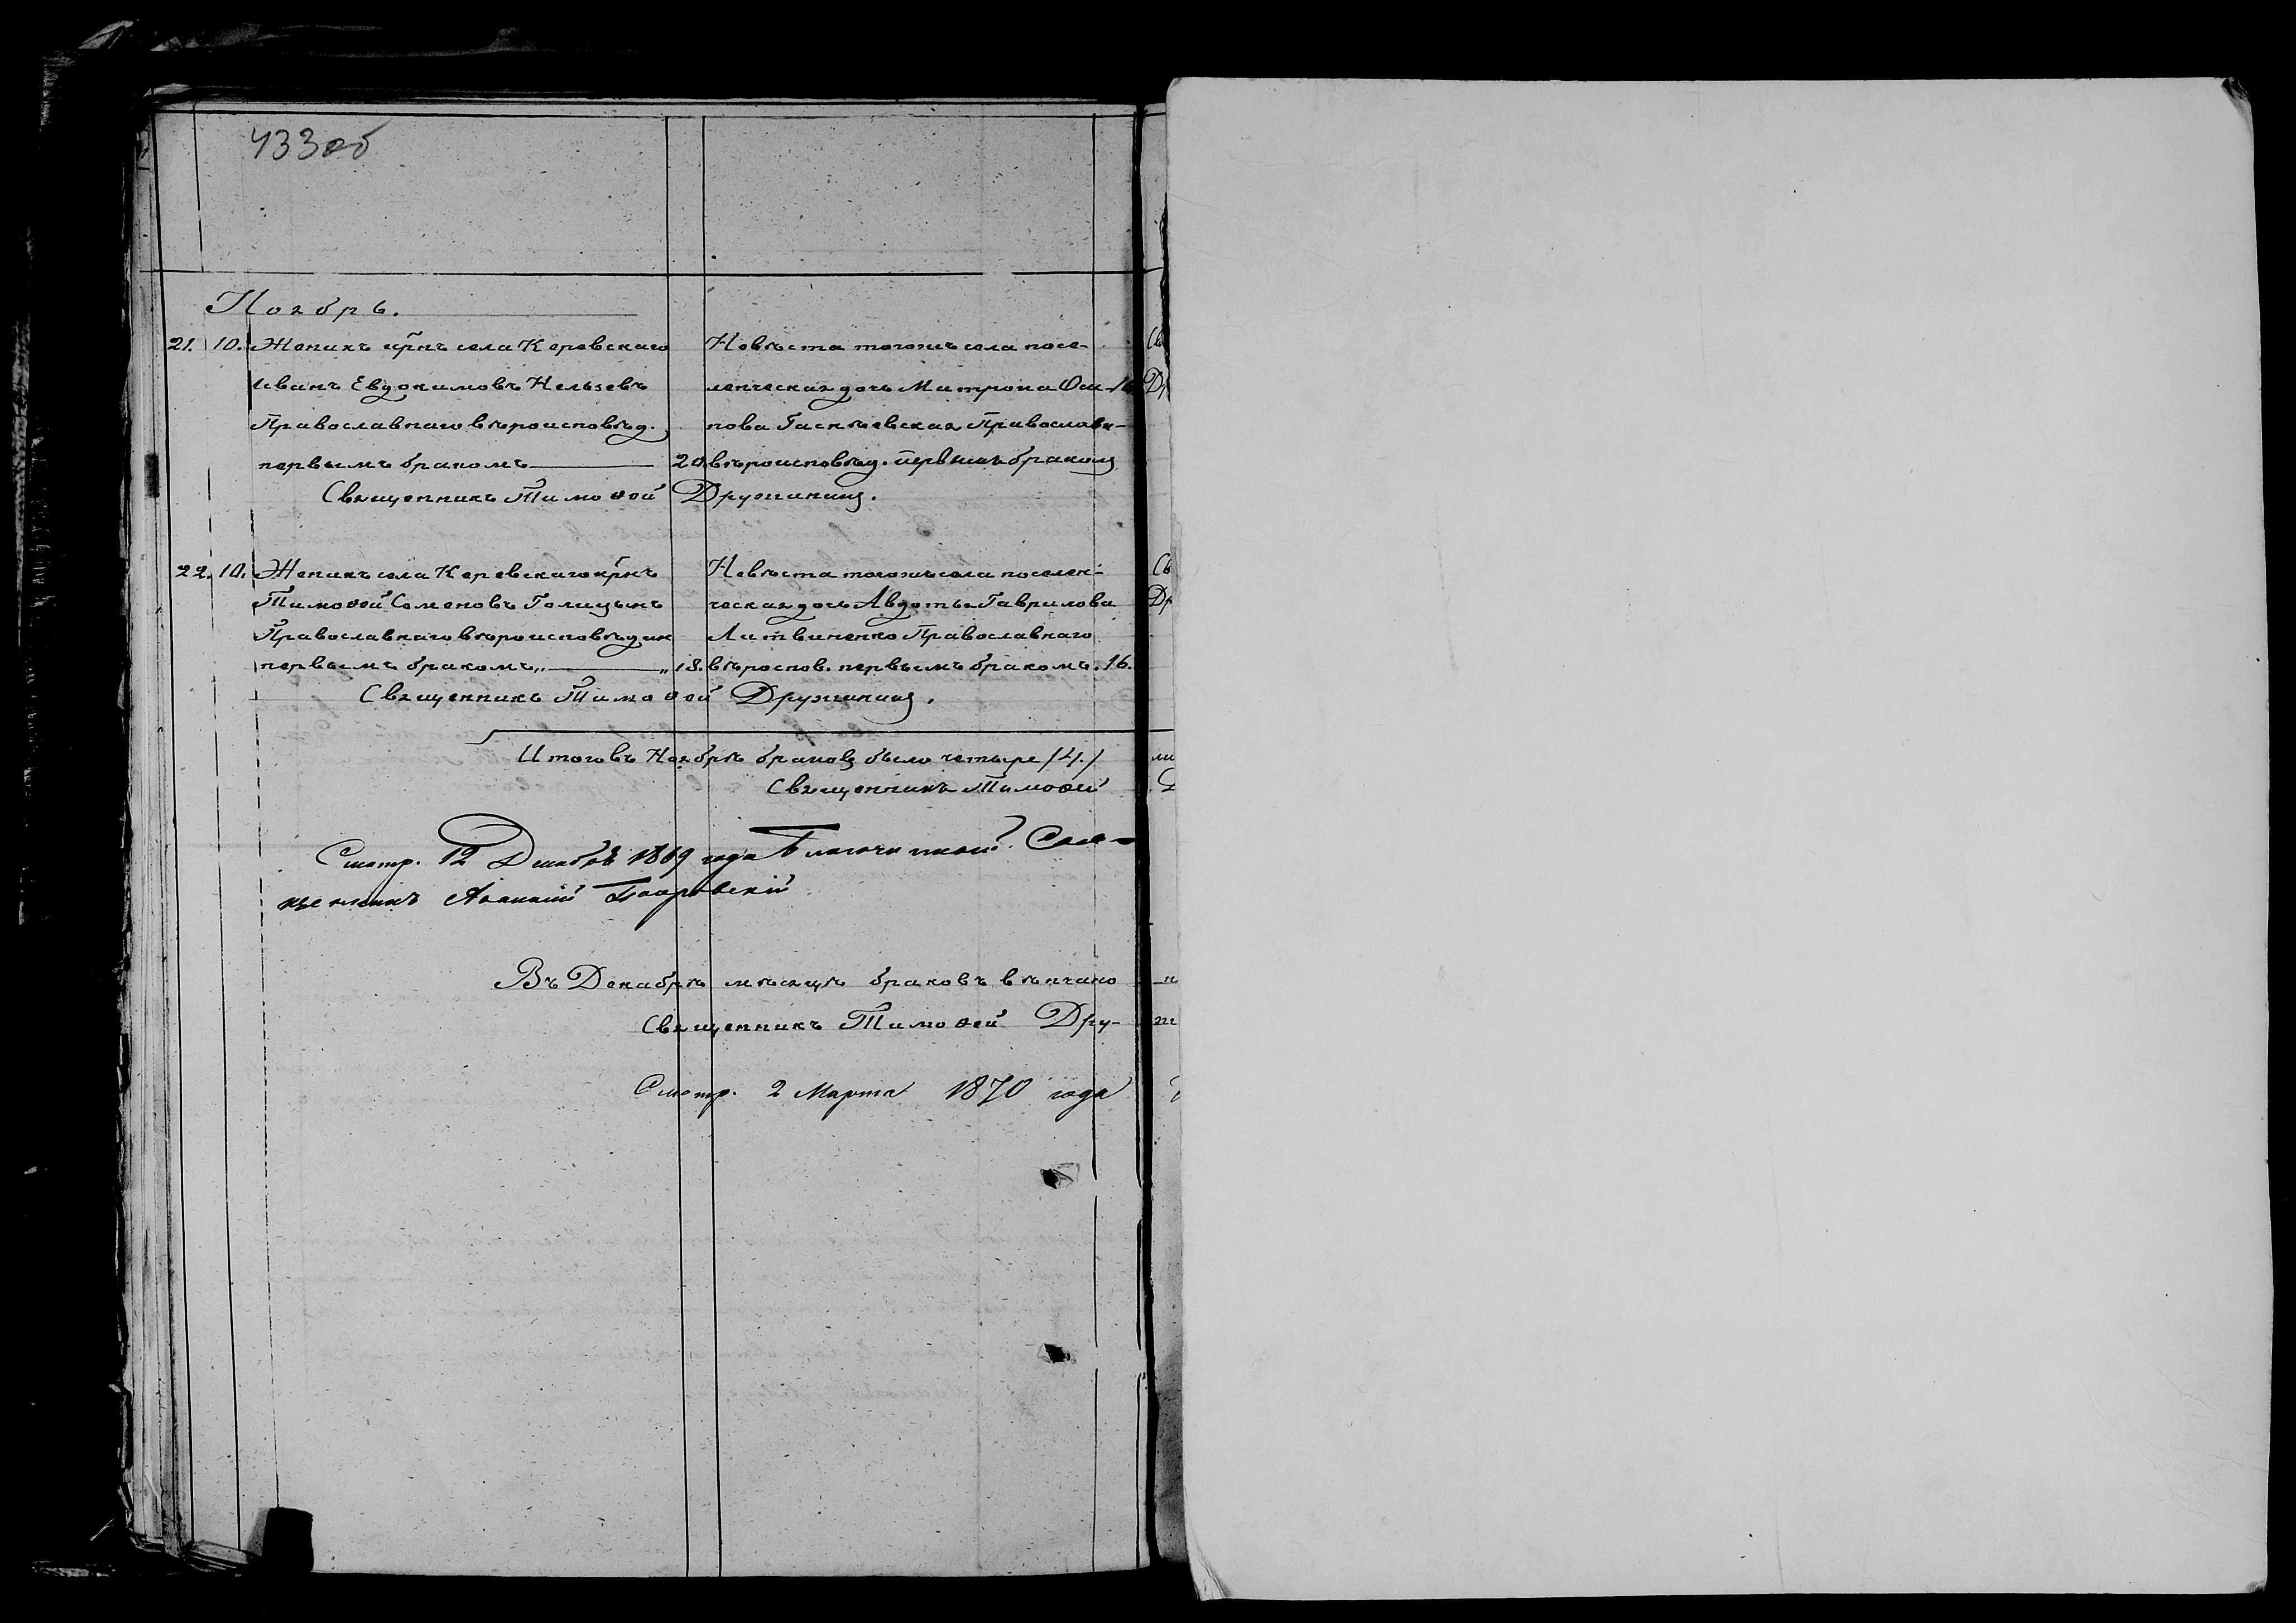 433 об
Ноябрь.
21. 10. Женихъ крнъ села Керевскаго
Иванъ Евдокимовъ Нельзевъ
Православнаго вѣроисповѣд.
первымъ бракомъ 20.
Невѣста тогожъ села посе-
ленческая дочь Матрона Оси- 16
пова Православн-
вѣроисповѣд. первымъ бракомъ
Священникъ Тимоѳей Дружининъ.
22. 10. Женихъ села Керевскаго крнъ
Тимоѳей Семеновъ Голицынъ
Православнаго вѣроисповѣдан
первымъ бракомъ „ „ 18.
Невѣста тогожъ села поселен-
ческая дочь Авдотья Гаврилова
Литвиненко Православнаго
вѣроспов. первымъ бракомъ. 16.
Священникъ Тимоѳей Дружининъ.
Итого въ Ноябрѣ браковъ было четыре (4.)
Священникъ Тимоѳей
Смотр. 12 Декабря 1869 года Благочинный
Въ Декабрѣ мѣсяцѣ браковъ вѣнчано
Священникъ Тимоѳей Дру-
Смотр. 2 Марта 1870 года